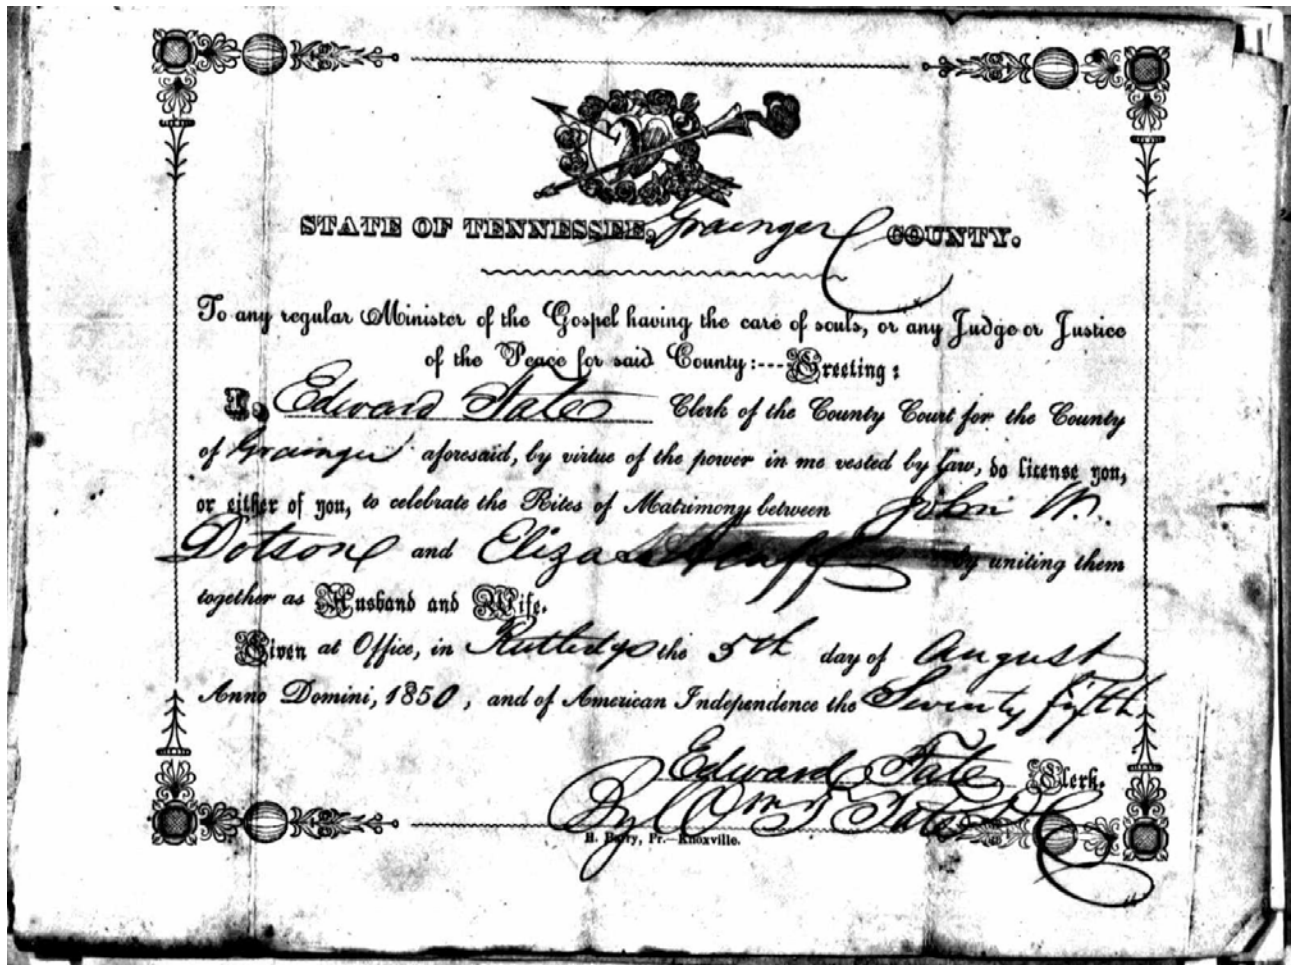 STATE OF TENNESSEE, Grainger COUNTY.
To any regular Minister of the Gospel having the care of souls, or any Judge or Justice
of the Peace for said County:---Greeting:
I, Edward Tate Clerk of the County Court for the County
of Grainger aforesaid, by virtue of the power in me vested by Law, do license you,
or either of you, to celebrate the Rites of Matrimony between John W.
Dotson and Eliza by uniting them
together as Husband and Wife.
Given at Office, in Rutledge the 5th day of August
Anno Domini, 1850, and of American Independence the Seventy fifth
Edward Tate Clerk.
By Wm Tate D C
H. Barry, Pr.—Knoxville.